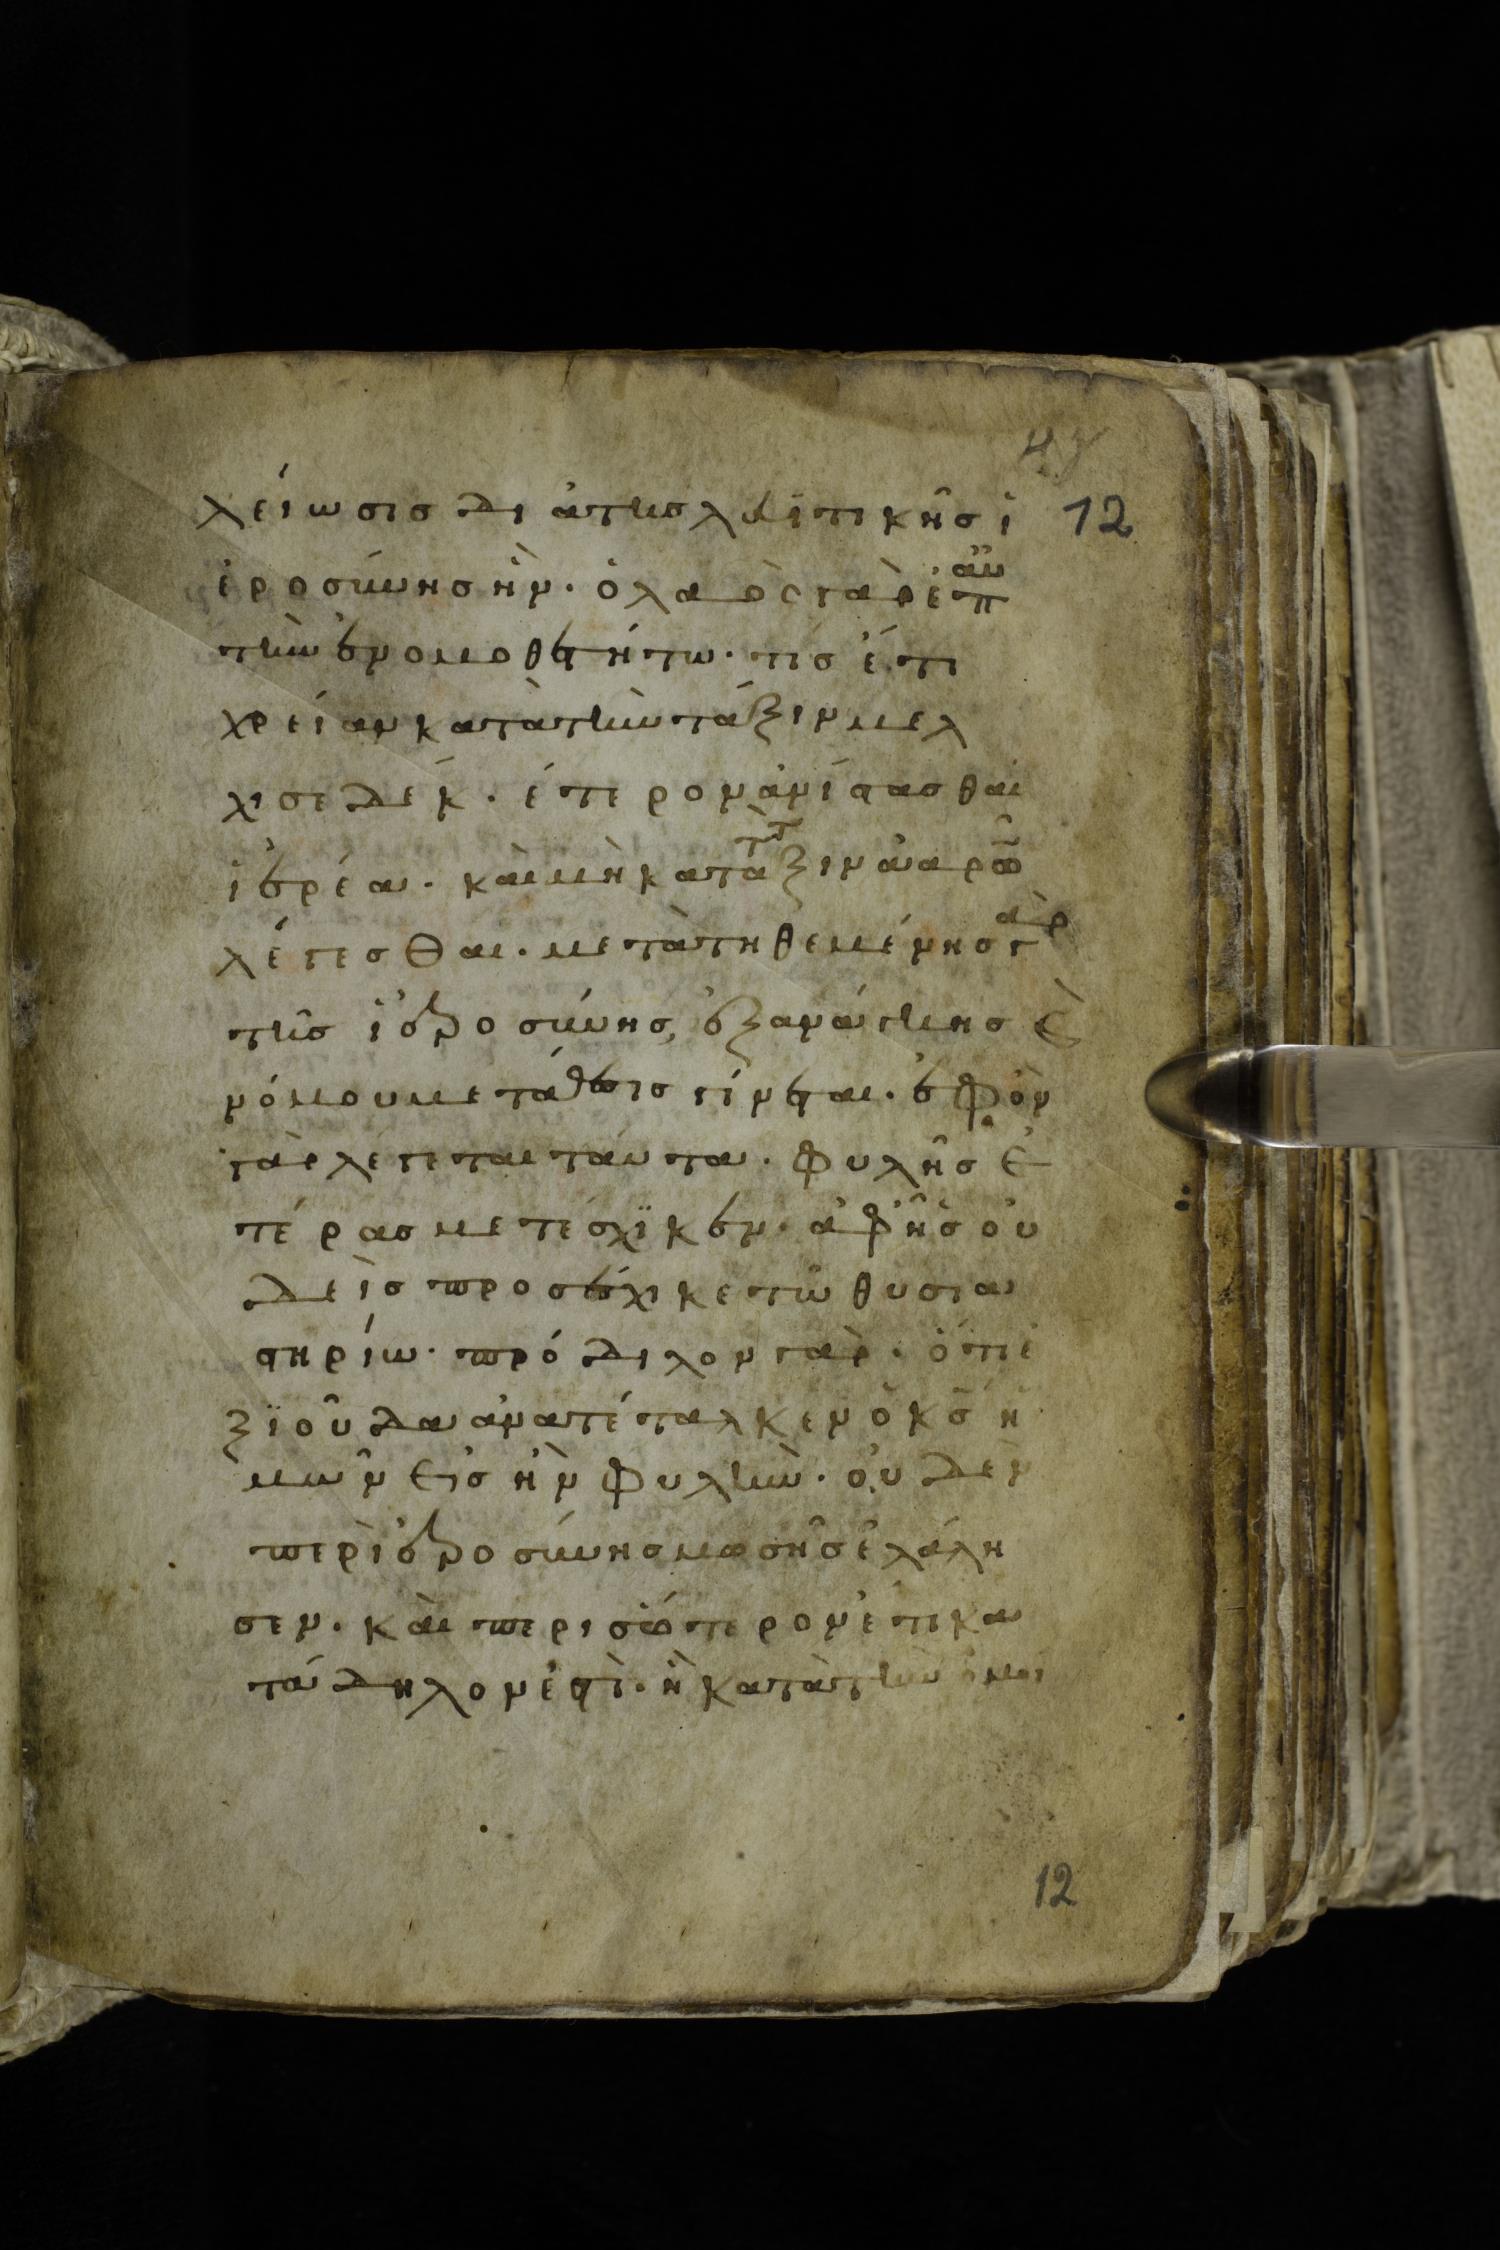 λείωσις διὰ τῆς λευϊτικῆς ἱ
12
ἐροσύνης ἦν· ὁ λαὸς γὰρ ἐπ αὐ
τὴν ἐνομοθετήτω· τίς ἔτι
χρείαν κατὰ τὴν τάξιν μελ
χισεδέκ· ἕτερον ἀνίστασθαι
ἱερέα· καὶ μὴ κατὰ τὴν τάξιν ἀαρὼ
λέγεσθαι· μετατηθεμένης γὰρ
τῆς ἱεροσύνης, ἐξ ἀνάγκης ὲ
νόμου μετάθεσις γίνεται· ἐφ ὃν
γὰρ λέγεται ταύτα· φυλῆς ἑ
τέρας μετέσχϊκεν· ἀφ ἧς οὐ
δεὶς προσέσχικε τῶ θυσια
στηρίω· πρόδιλον γὰρ· ὅτι ἐ
ξ ϊοῦδα ἀνατέταλκεν ὁ κς ἡ
μῶν εἰς ἣν φυλὴν· οὐδὲν
περὶ ἱεροσύνης μωσῆς ἐλάλη
σεν· καὶ περισώτερον ἔτι κα
τάδηλον ἐστὶ· ἢ κατὰ τὴν ὁμοι
12